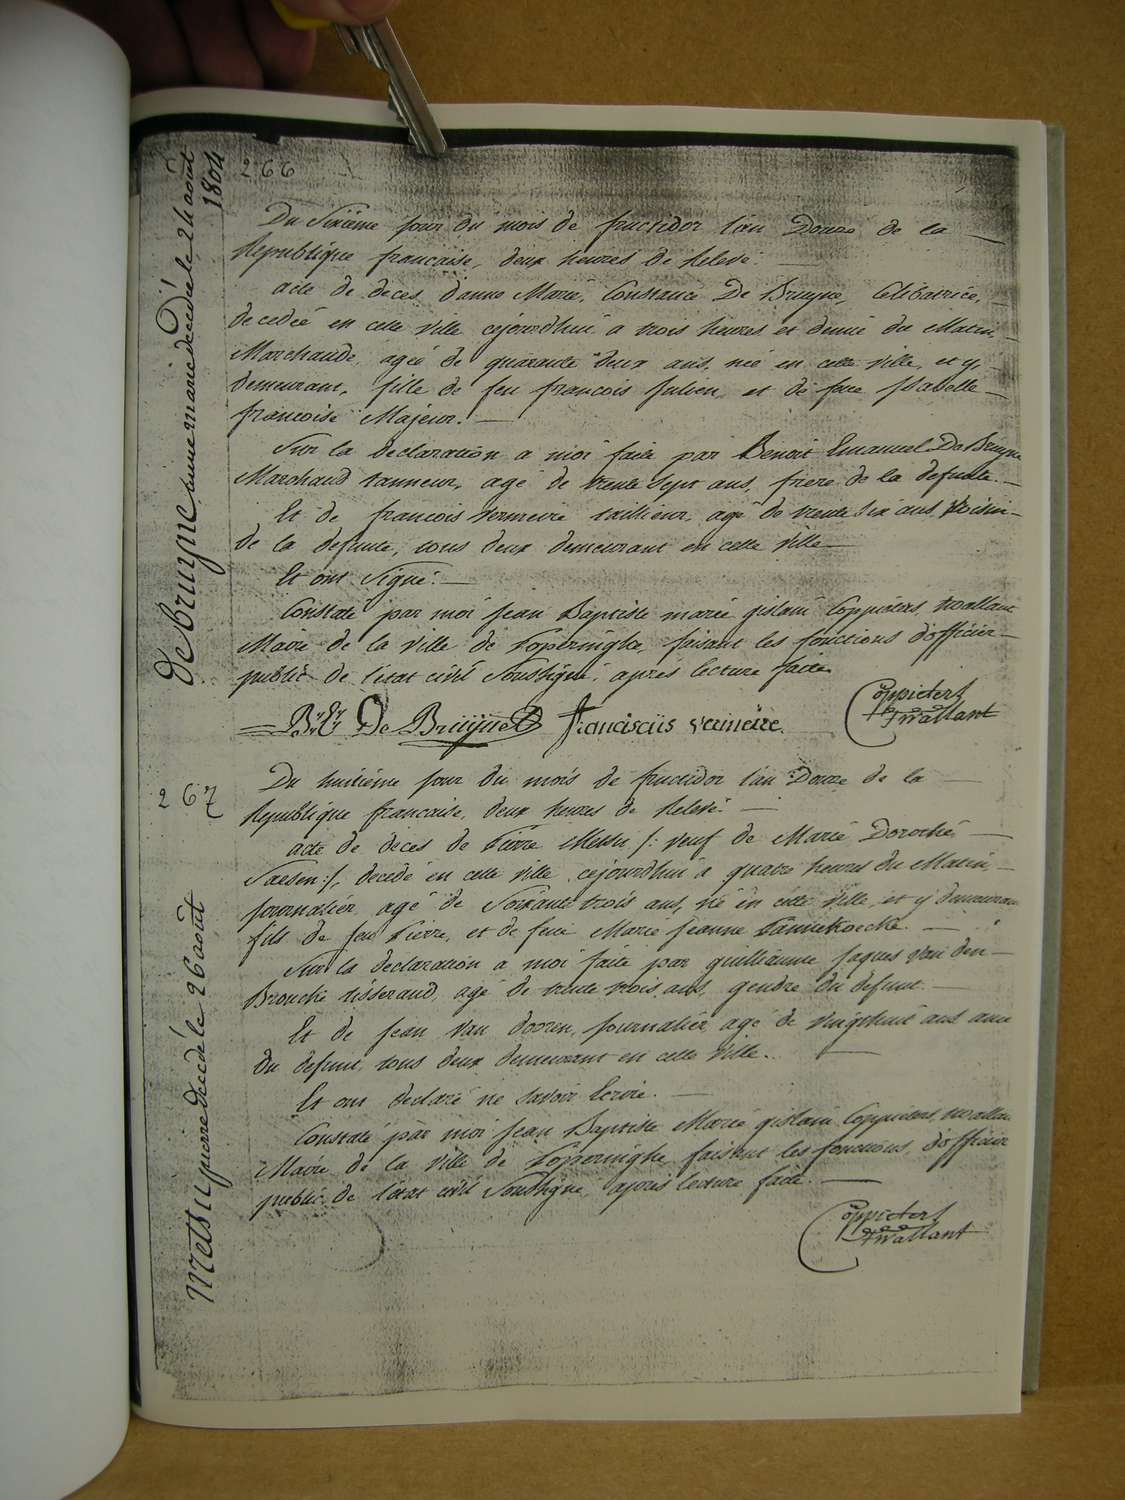 266
de bruyne anne marie decedé le 24 août 1804
Du Sixiéme jour du mois de fructidor l'an Douze de la
Republique francaise, deux heures de Relevé.
acte de deces d'anne Marie, Constance De Bruyne, Celibatrice,
decedeé en cette ville cejourdhui a trois heures et demie du Matin,
Marchande, ageé de quarante deux ans, neé en cette ville, et y,
demeurant, fille de feu francois Julien, et de feue Isabelle
francoise Majeur.
Sur la declaration a moi faite par Benoit Emanuel De Bruyne
Marchand tanneur, agé de trente sept ans, frere de la defunte.
Et de francois vermeire taillieur, agé de trente six ans, Voisin
de la defunte, tous deux demeurant en cette ville
Et ont Signé.
Constaté par moi Jean Baptiste marie gislain Coppieters, twallant
Maire de la ville de Poperinghe, faisant les fonctions d'officier
public de l'état civil Soussigné, après lecture faite
De Bruyne Franciscus vermeire.
Coppieters
Twallant
267
Metsu pierre decedé le 26 août
Du huitiéme jour du mois de fructidor l'an Douze de la
Republique francaise, deux heures de Relevé.
acte de deces de Pierre Metsu /: veuf de Marie Dorothé
Saesen :/, decedé en cette ville cejourdhui a quatre heures du Matin,
journalier, agé de Soixante trois ans, né en cette ville, et y demeurant
fils de feu Pierre, et de feue Marie Jeanne
Sur la declaration a moi faite par guilliaume Jaques Van den
Brouche tisserand, agé de trente trois ans, gendre du defunt.
Et de Jean Van dooren, journalier, agé de vingthuit ans ami
du defunt, tous deux demeurant en cette ville.
Et ont declaré ne savoir Ecrire.
Constaté par moi Jean Baptiste Marie gislain Coppieters, twallant
Maire de la ville de Poperinghe faisant les fonctions, d'officier
public de l'état civil Soussigné, après lecture faite.
Coppieters
Twallant